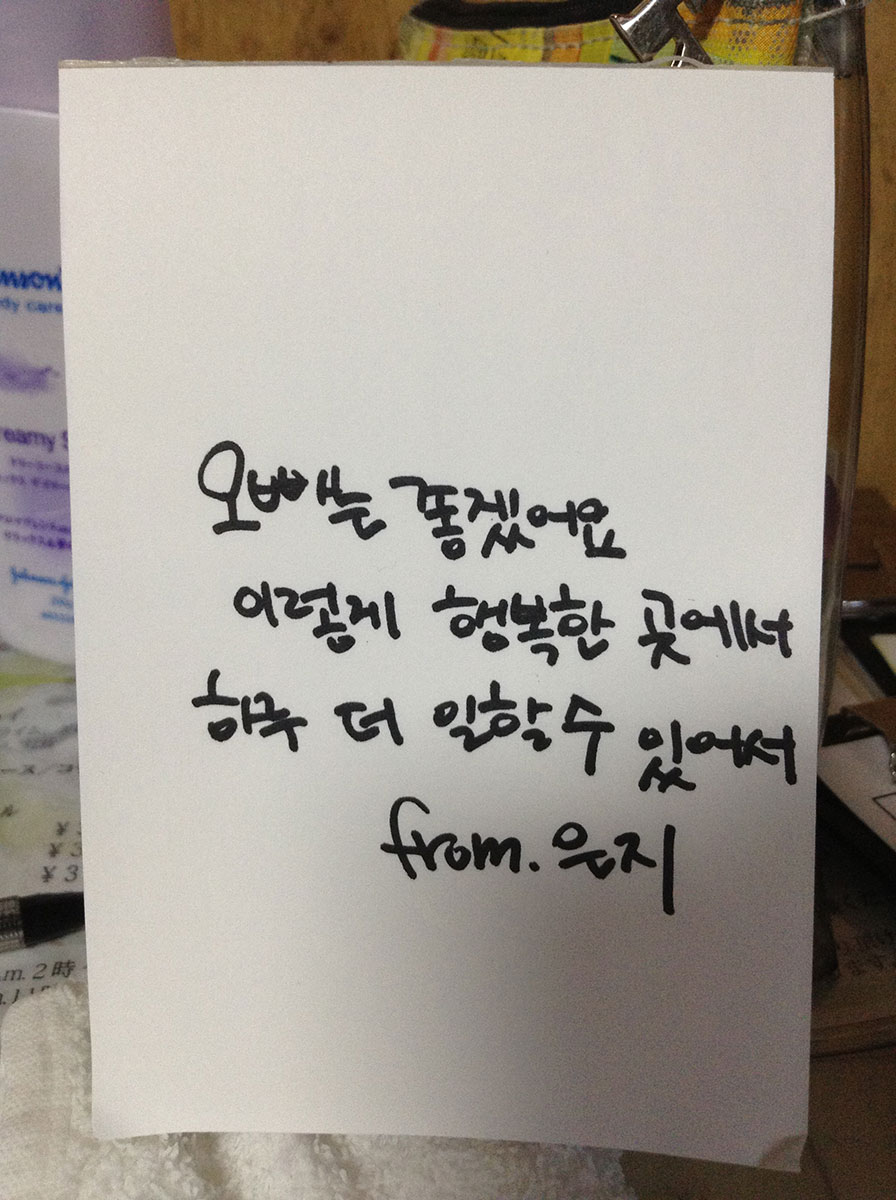 오빠는 좋겠어요
이렇게 행복한 곳에서
하루 더 일할 수 있어서
from. 은지
dy care
reamy S
¥3
¥3
m. 2時